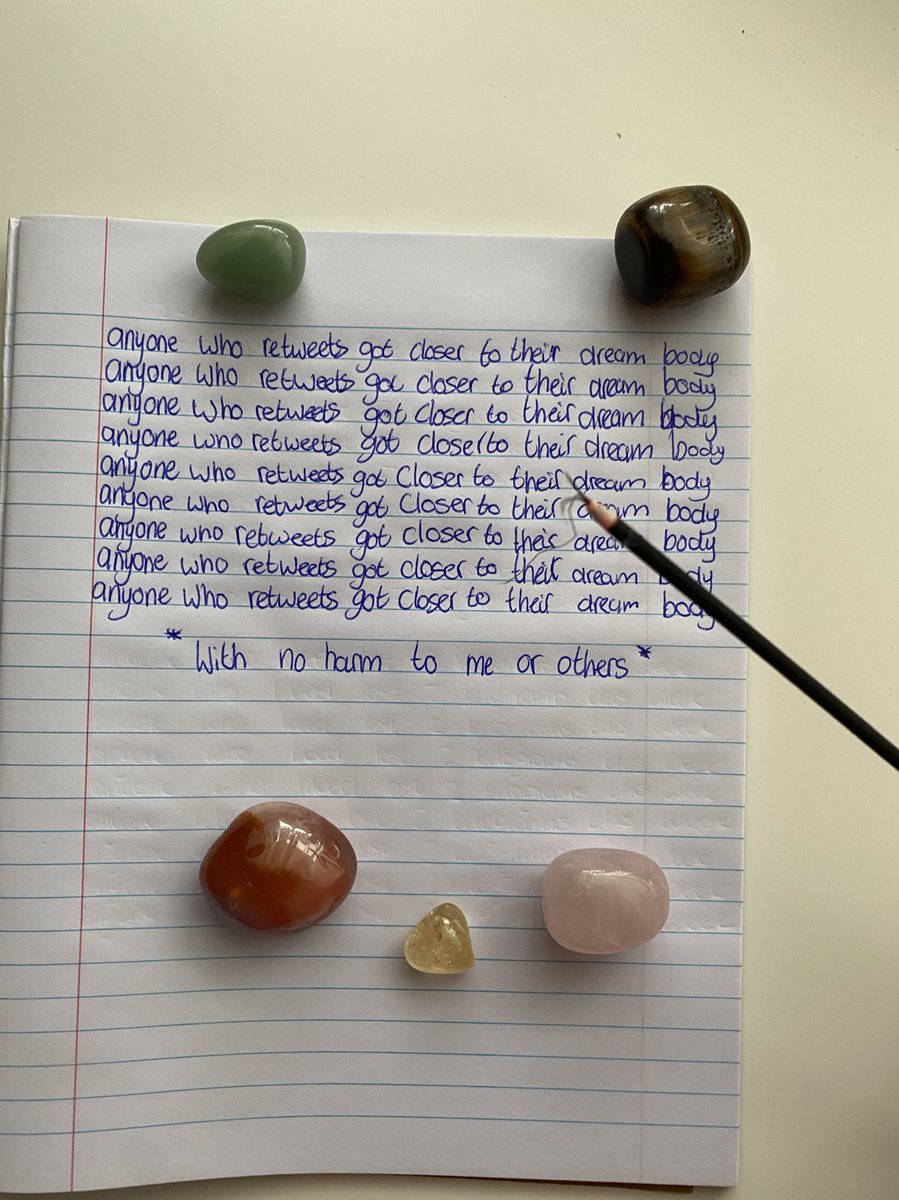 anyone who retweets got closer to their dream body
anyone who retweets got closer to their dream body
anyone who retweets got closer to their dream body
anyone who retweets got closer to their dream body
anyone who retweets got closer to their dream body
anyone who retweets got closer to their dream body
anyone who retweets got closer to their dream body
anyone who retweets got closer to their dream body
anyone who retweets got closer to their dream body
*With no harm to me or others*